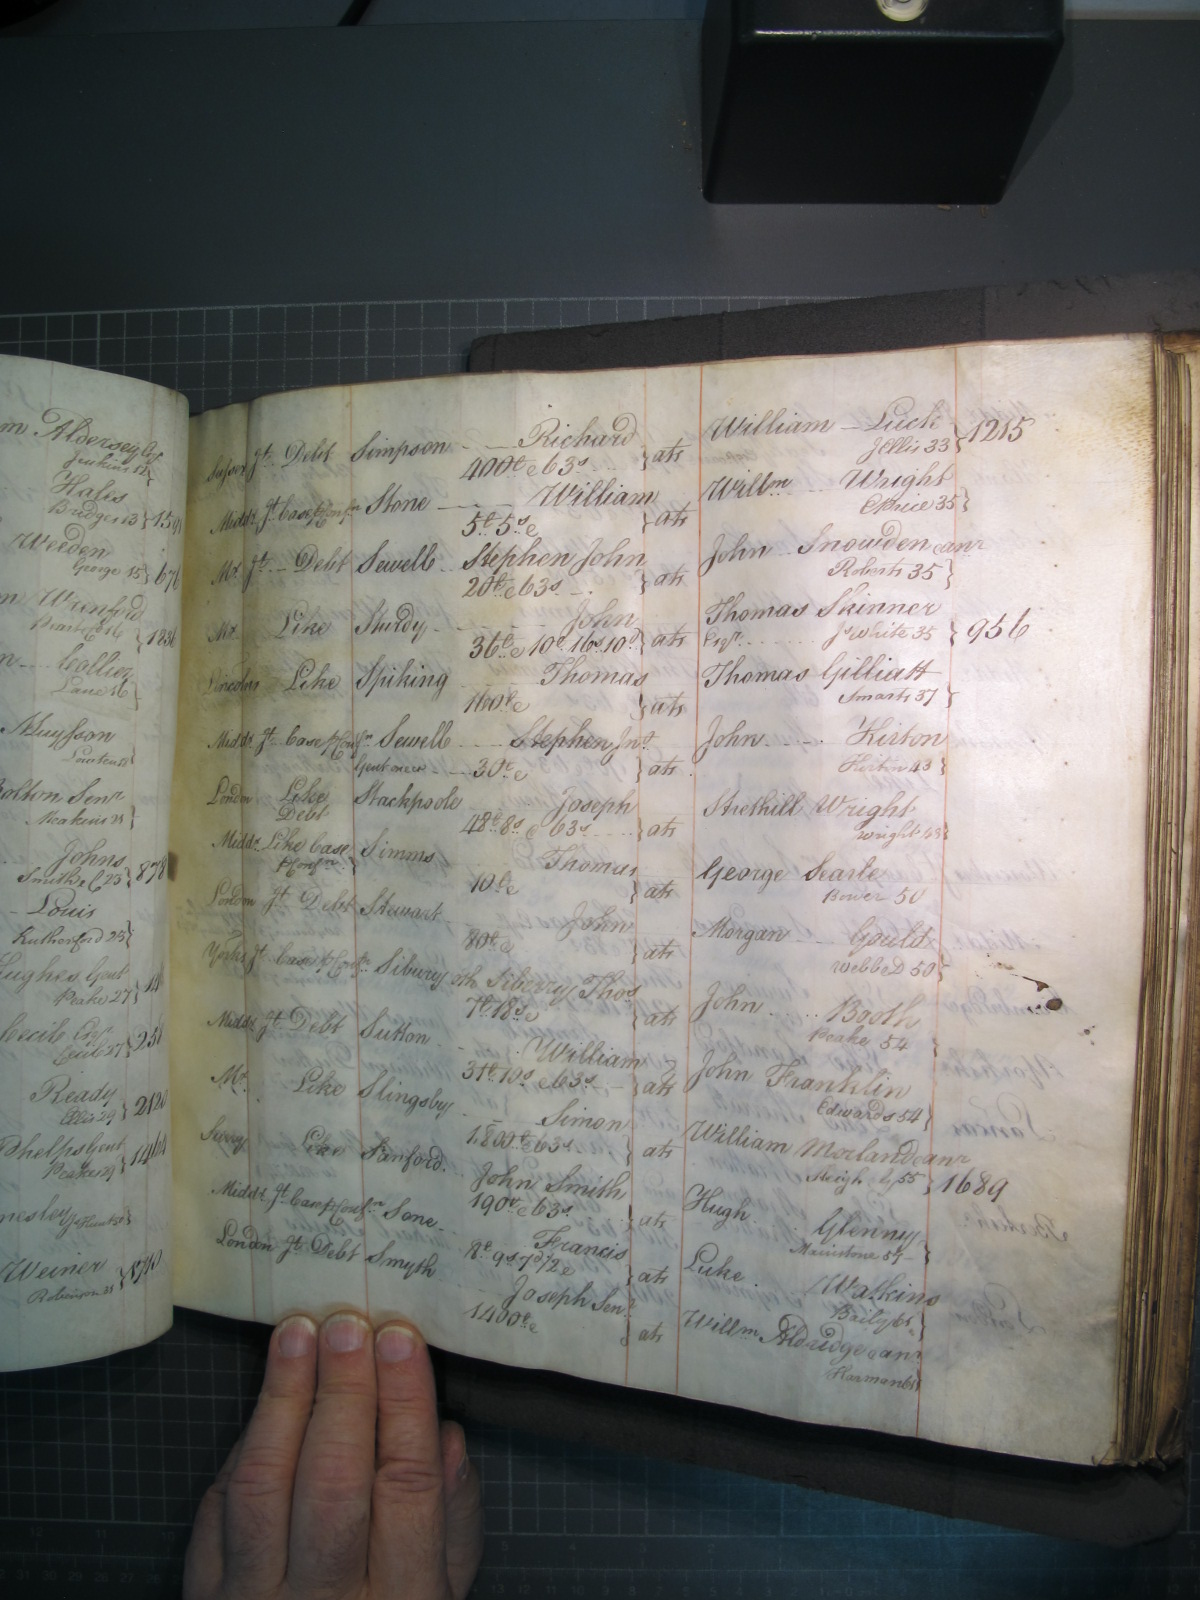 m Aldersey Esq
Jenkins
Hales
Bridges 13 } 159
Weeden
George 15 } 676
n Winford
1236
n Collier
Lane 16
olton Senr
Meakins 21
Johns
Smith & C 23 } 878
Louis
Rutherford 25
Hughes Gent
Peake 27
Cecil Esqr
Cecil 27 } 256
Ready
Ellis 29 } 2120
Phelps Gent
Weiner
Robinson 31
Sussex Jt. Debt Simpson Richard } ats William Luck } 1215
400£ & 63s Jellis 33
Middx. Jt Case & Confn Stone William } ats Willm Wright
5£ 5s & Price 35
Mx. Jt. Debt Sewell Stephen John } ats John Snowden & anr
20£ & 63s Roberts 35
Mx. Like Sturdy John } ats Thomas Skinner
36£ & 10£ 16s 10d Esqr. Js White 35 } 956
Lincolns Like Spiking Thomas } ats Thomas Gilliatt
Smarts 37
Middx. Jt. Case & Confn Sewell Stephen Jnr } ats John Kirton
Gent one &c 30£ & Kirtin 43
London Like Debt Stackpoole Joseph } ats Strethill Wright
48£ 8s & 63s Wright 48
Middx. Like Case & Confn. Simms Thomas } ats George Searle
10£ & Bower 50
London Jt. Debt Stewart John } ats Morgan Gould
80£ & Webb & D 50
Yorks Jt. Case & Confn Sibury oth Siberry Thos } ats John Booth
7£ 18s & Peake 54
Middx Jt. Debt Sutton William } ats John Franklin
31£ 10s & 63s Edwards 54
Mx. Like Slingsby Simon } ats William Morland & anr
1800£ & 63s Sleigh 55 } 1689
Surry Like Sanford John Smith } ats Hugh Glenny
190£ & 63s
Middx. Jt Case & Confn Sone Francis } ats Luke Watkins
8£ 9s 7d 1/2 & Baily 61
London Jt. Debt Smyth Joseph Senr } ats Willm Aldridge & anr
1400£ & Harman 61